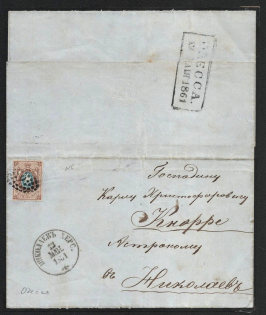 ОДЕССА.
1861
Господину
Карлу Христофоровичу
Кнорре
Астроному
въ Николаевъ
НИКОЛАЕВЪ ХЕРС.